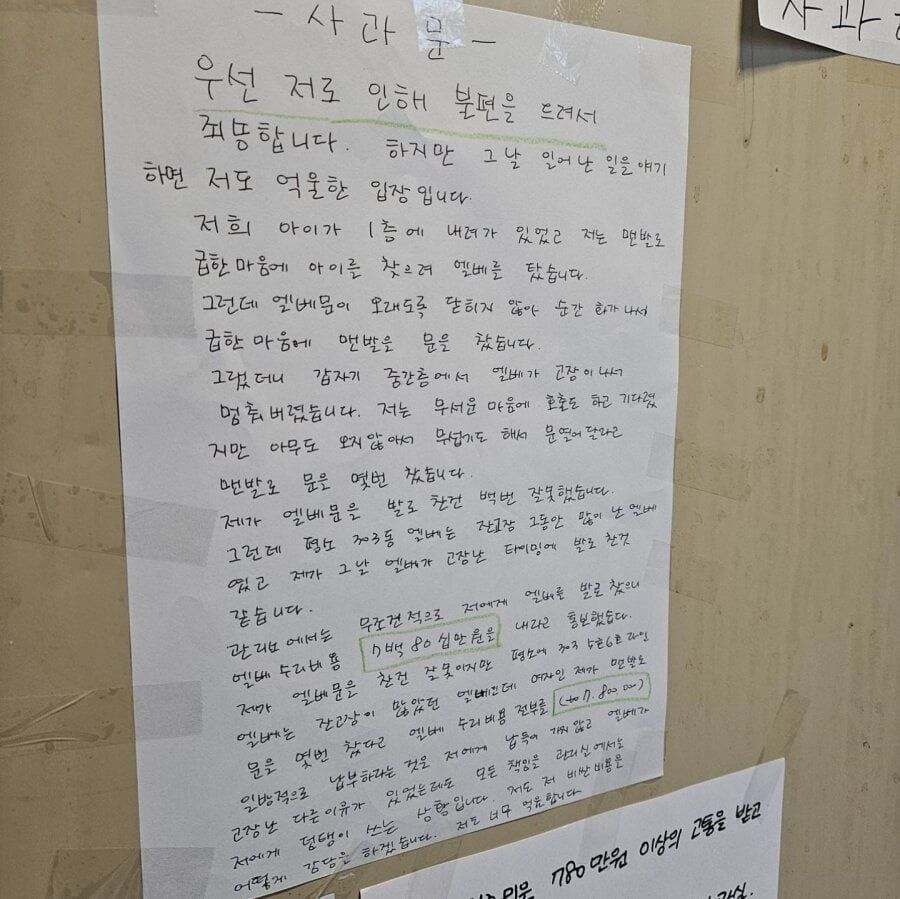 - 사 과 문 -
우선 저로 인해 불편을 드려서
죄송합니다. 하지만 그날 일어난 일을 얘기
하면 저도 억울한 입장입니다.
저희 아이가 1층에 내려가 있었고 저는 맨발로
급한 마음에 아이를 찾으려 엘베를 탔습니다.
그런데 엘베문이 오래도록 닫히지 않아 순간 화가 나서
급한 마음에 맨발을 문을 찼습니다.
그랬더니 갑자기 중간층에서 엘베가 고장이 나서
멈춰버렸습니다. 저는 무서운 마음에 호출도 하고 기다렸
지만 아무도 오지않아서 무섭기도 해서 문열어달라고
맨발로 문을 몇번 찼습니다.
제가 엘베문을 발로 찬건 백번 잘못했습니다.
그런데 평소 303동 엘베는 잔고장 그동안 많이 난 엘베
였고 제가 그날 엘베가 고장난 타이밍에 발로 찬것
같습니다.
관리소에서는 무조건적으로 저에게 엘베를 발로 찼으니
엘베 수리비용 7백 80 십만원을 내라고 통보했습니다.
제가 엘베문을 찬건 잘못이지만 평소에 303 5호6호라인
엘베는 잔고장이 많았던 엘베인데 여자인 제가 맨발로
문을 몇번 찼다고 엘베 수리비용 전부를 (7.800.00)
일방적으로 납부하라는 것은 저에게 납득이 가지 않고 엘베가
고장난 다른이유가 있었는데도 모든 책임을 관리실에서는
저에게 덤탱이 쓰는 상황입니다. 저도 저 비싼비용을
어떻게 감당을 하겠습니다. 저도 너무 억울합니다
사과
780만원 이상의 고통을 받고